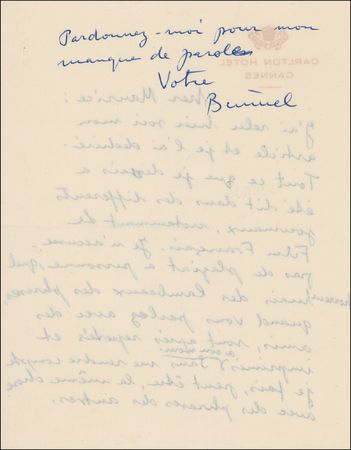 Pardonnez-moi pour mon
manque de parole
Votre
Buñuel
CARLTON HOTEL
CANNES
Cher Maurice:
J'ai relu hier soir mon
article et je l'ai déchiré.
Tout ce que je
été dit dans des différents
journaux, notamment le
Film Français. Je n'accuse
pas de plagiat a personne,
mais des lambeaux des phrases,
quand vous parlez avec des
amis, sont après répétés et
imprimés Sans me rendre compte
je fais, peut être, la même chose
avec des phrases des autres.